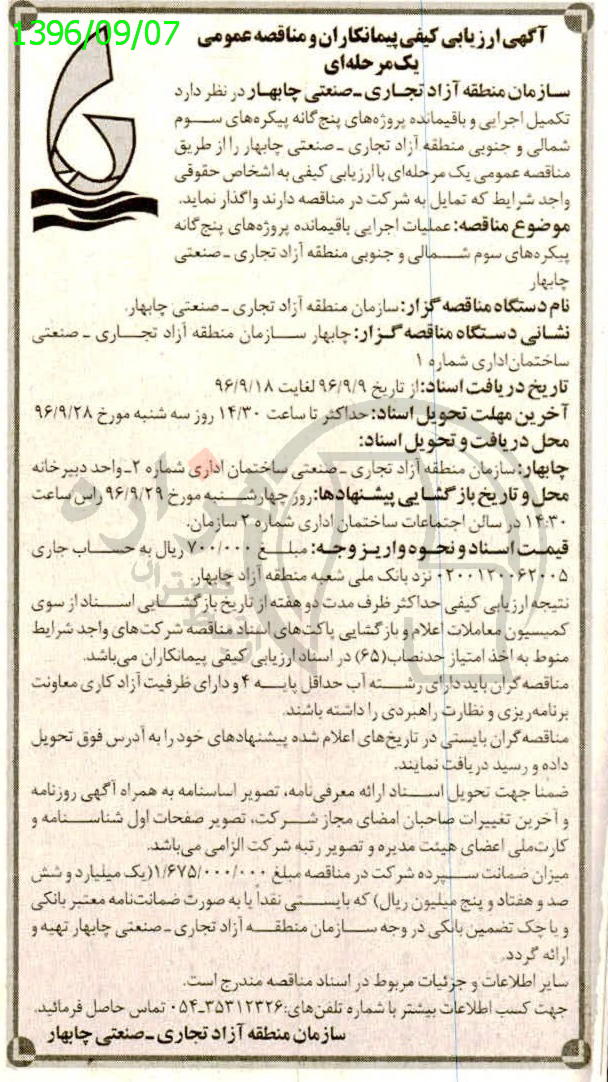 1396/09/07
آگهی ارزیابی کیفی پیمانکاران و مناقصه عمومی
یک مرحله‌ای
سازمان منطقه آزاد تجاری ـ صنعتی چابهار در نظر دارد
تکمیل اجرایی و باقیمانده پروژه‌های پنج گانه پیکره‌های سوم
شمالی و جنوبی منطقه آزاد تجاری ـ صنعتی چابهار را از طریق
مناقصه عمومی یک مرحله‌ای با ارزیابی کیفی به اشخاص حقوقی
واجد شرایط که تمایل به شرکت در مناقصه دارند واگذار نماید.
موضوع مناقصه: عملیات اجرایی باقیمانده پروژه‌های پنج گانه
پیکره‌های سوم شمالی و جنوبی منطقه آزاد تجاری ـ صنعتی
چابهار
نام دستگاه مناقصه گزار: سازمان منطقه آزاد تجاری ـ صنعتی چابهار.
نشانی دستگاه مناقصه گزار: چابهار سازمان منطقه آزاد تجاری ـ صنعتی
ساختمان اداری شماره ۱
تاریخ دریافت اسناد: از تاریخ ۹۶/۹/۹ لغایت ۹۶/۹/۱۸
آخرین مهلت تحویل اسناد: حداکثر تا ساعت ۱۴/۳۰ روز سه شنبه مورخ ۹۶/۹/۲۸
محل دریافت و تحویل اسناد:
چابهار: سازمان منطقه آزاد تجاری ـ صنعتی ساختمان اداری شماره ۲ـ واحد دبیرخانه
محل و تاریخ بازگشایی پیشنهادها: روز چهارشنبه مورخ ۹۶/۹/۲۹ راس ساعت
۱۴:۳۰ در سالن اجتماعات ساختمان اداری شماره ۲ سازمان.
قیمت اسناد و نحوه واریز وجه: مبلغ ۷۰۰/۰۰۰ ریال به حساب جاری
۰۲۰۰۱۲۰۰۶۲۰۰۵ نزد بانک ملی شعبه منطقه آزاد چابهار.
نتیجه ارزیابی کیفی حداکثر ظرف مدت دو هفته از تاریخ بازگشایی اسناد از سوی
کمیسیون معاملات اعلام و بازگشایی پاکت‌های اسناد مناقصه شرکت‌های واجد شرایط
منوط به اخذ امتیاز حدنصاب(۶۵) در اسناد ارزیابی کیفی پیمانکاران می‌باشد.
مناقصه گران باید دارای رشته آب حداقل پایه ۴ و دارای ظرفیت آزاد کاری معاونت
برنامه‌ریزی و نظارت راهبردی را داشته باشند.
مناقصه گران بایستی در تاریخ‌های اعلام شده پیشنهادهای خود را به آدرس فوق تحویل
داده و رسید دریافت نمایند.
ضمناً جهت تحویل اسناد ارائه معرفی‌نامه، تصویر اساسنامه به همراه آگهی روزنامه
و آخرین تغییرات صاحبان امضای مجاز شرکت، تصویر صفحات اول شناسنامه و
کارت‌ملی اعضای هیئت مدیره و تصویر رتبه شرکت الزامی می‌باشد.
میزان ضمانت سپرده شرکت در مناقصه مبلغ ۱/۶۷۵/۰۰۰/۰۰۰(یک میلیارد و شش
صد و هفتاد و پنج میلیون ریال) که بایستی نقداً یا به صورت ضمانت‌نامه معتبر بانکی
و یا چک تضمین بانکی در وجه سازمان منطقه آزاد تجاری ـ صنعتی چابهار تهیه و
ارائه گردد.
سایر اطلاعات و جزئیات مربوط در اسناد مناقصه مندرج است.
جهت کسب اطلاعات بیشتر با شماره تلفن‌های: ۳۵۳۱۲۳۲۶ـ۰۵۴ تماس حاصل فرمائید.
سازمان منطقه آزاد تجاری ـ صنعتی چابهار